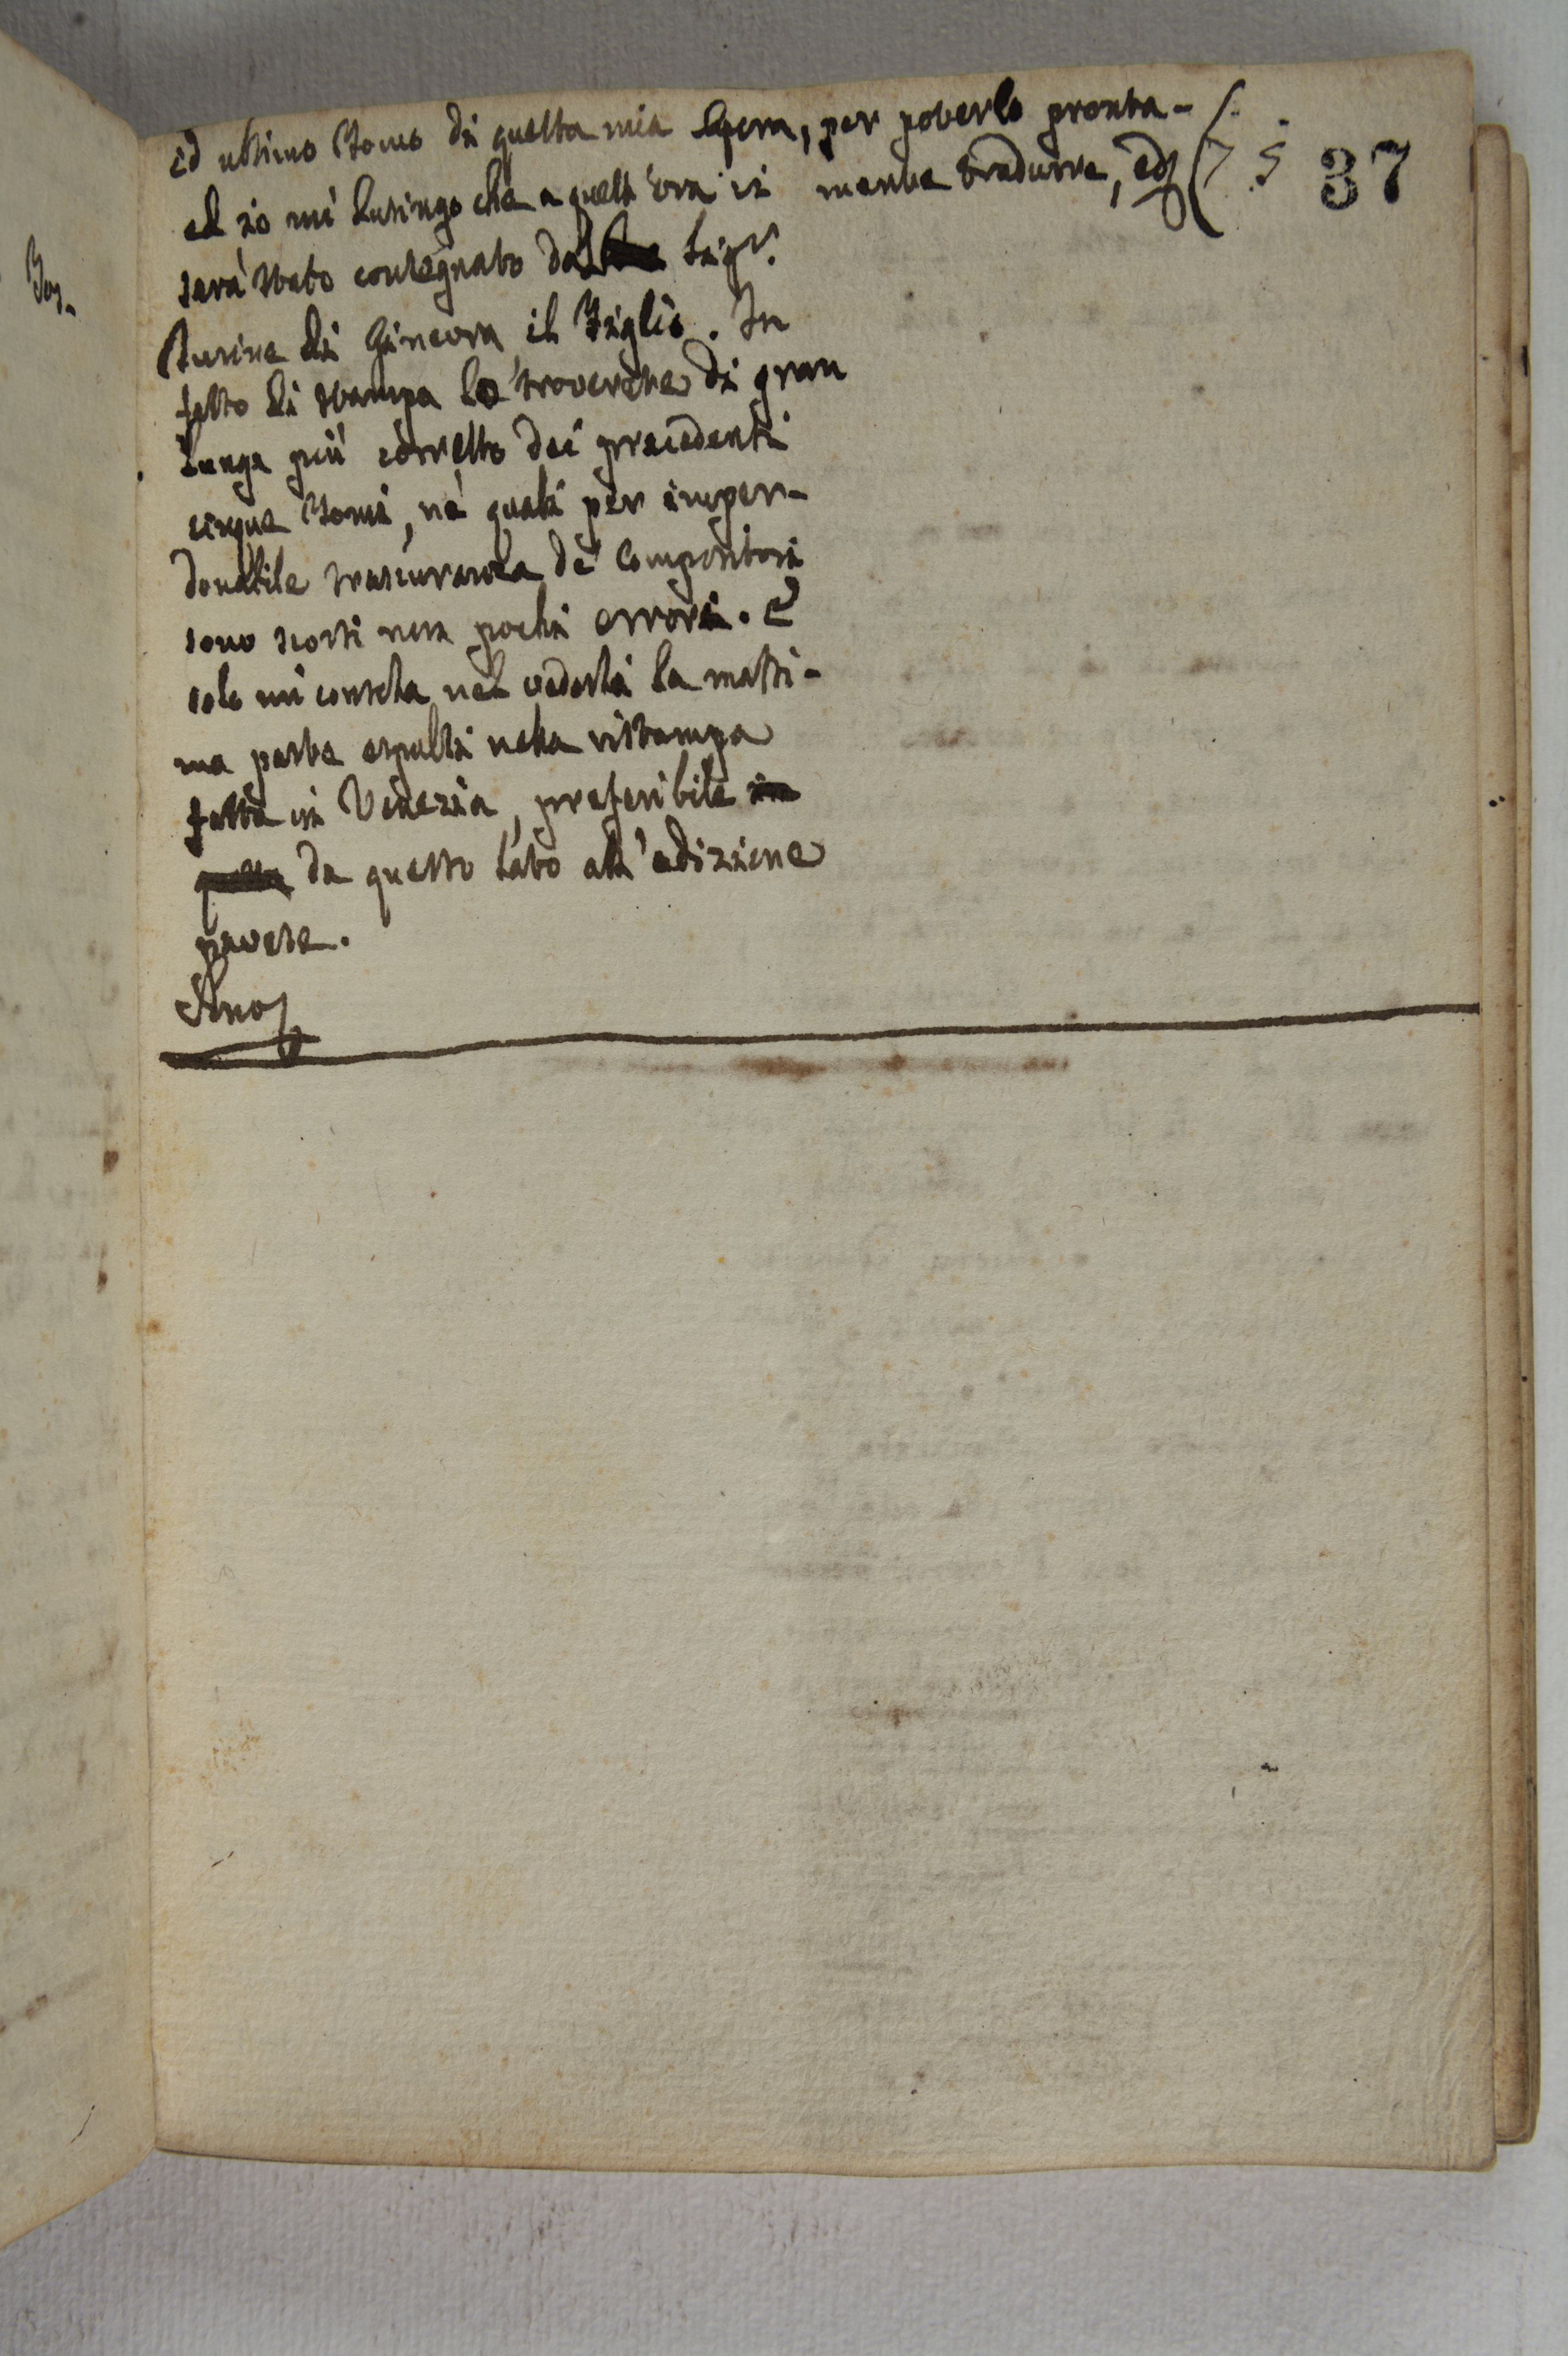 75 37
ed ultimo Tomo di questa mia Opera, per poterlo pronta-
mente tradurre, ed
ed io mi lusingo che a quest'ora vi
sarà stato consegnato dal Sigr.
Turine di Ginevra il Figlio. In
fatto di stampa lo troverete di gran
lunga più corretto dei precedenti
cinque Tomi, ne' quali per imper-
donabile trascuranza de' Compositori
sono scorsi non pochi errori. E
solo mi consola nel vederli la massi-
ma parte espulsi nella ristampa
fatta in Venezia, preferibile
da questo lato all'edizione
pavese.